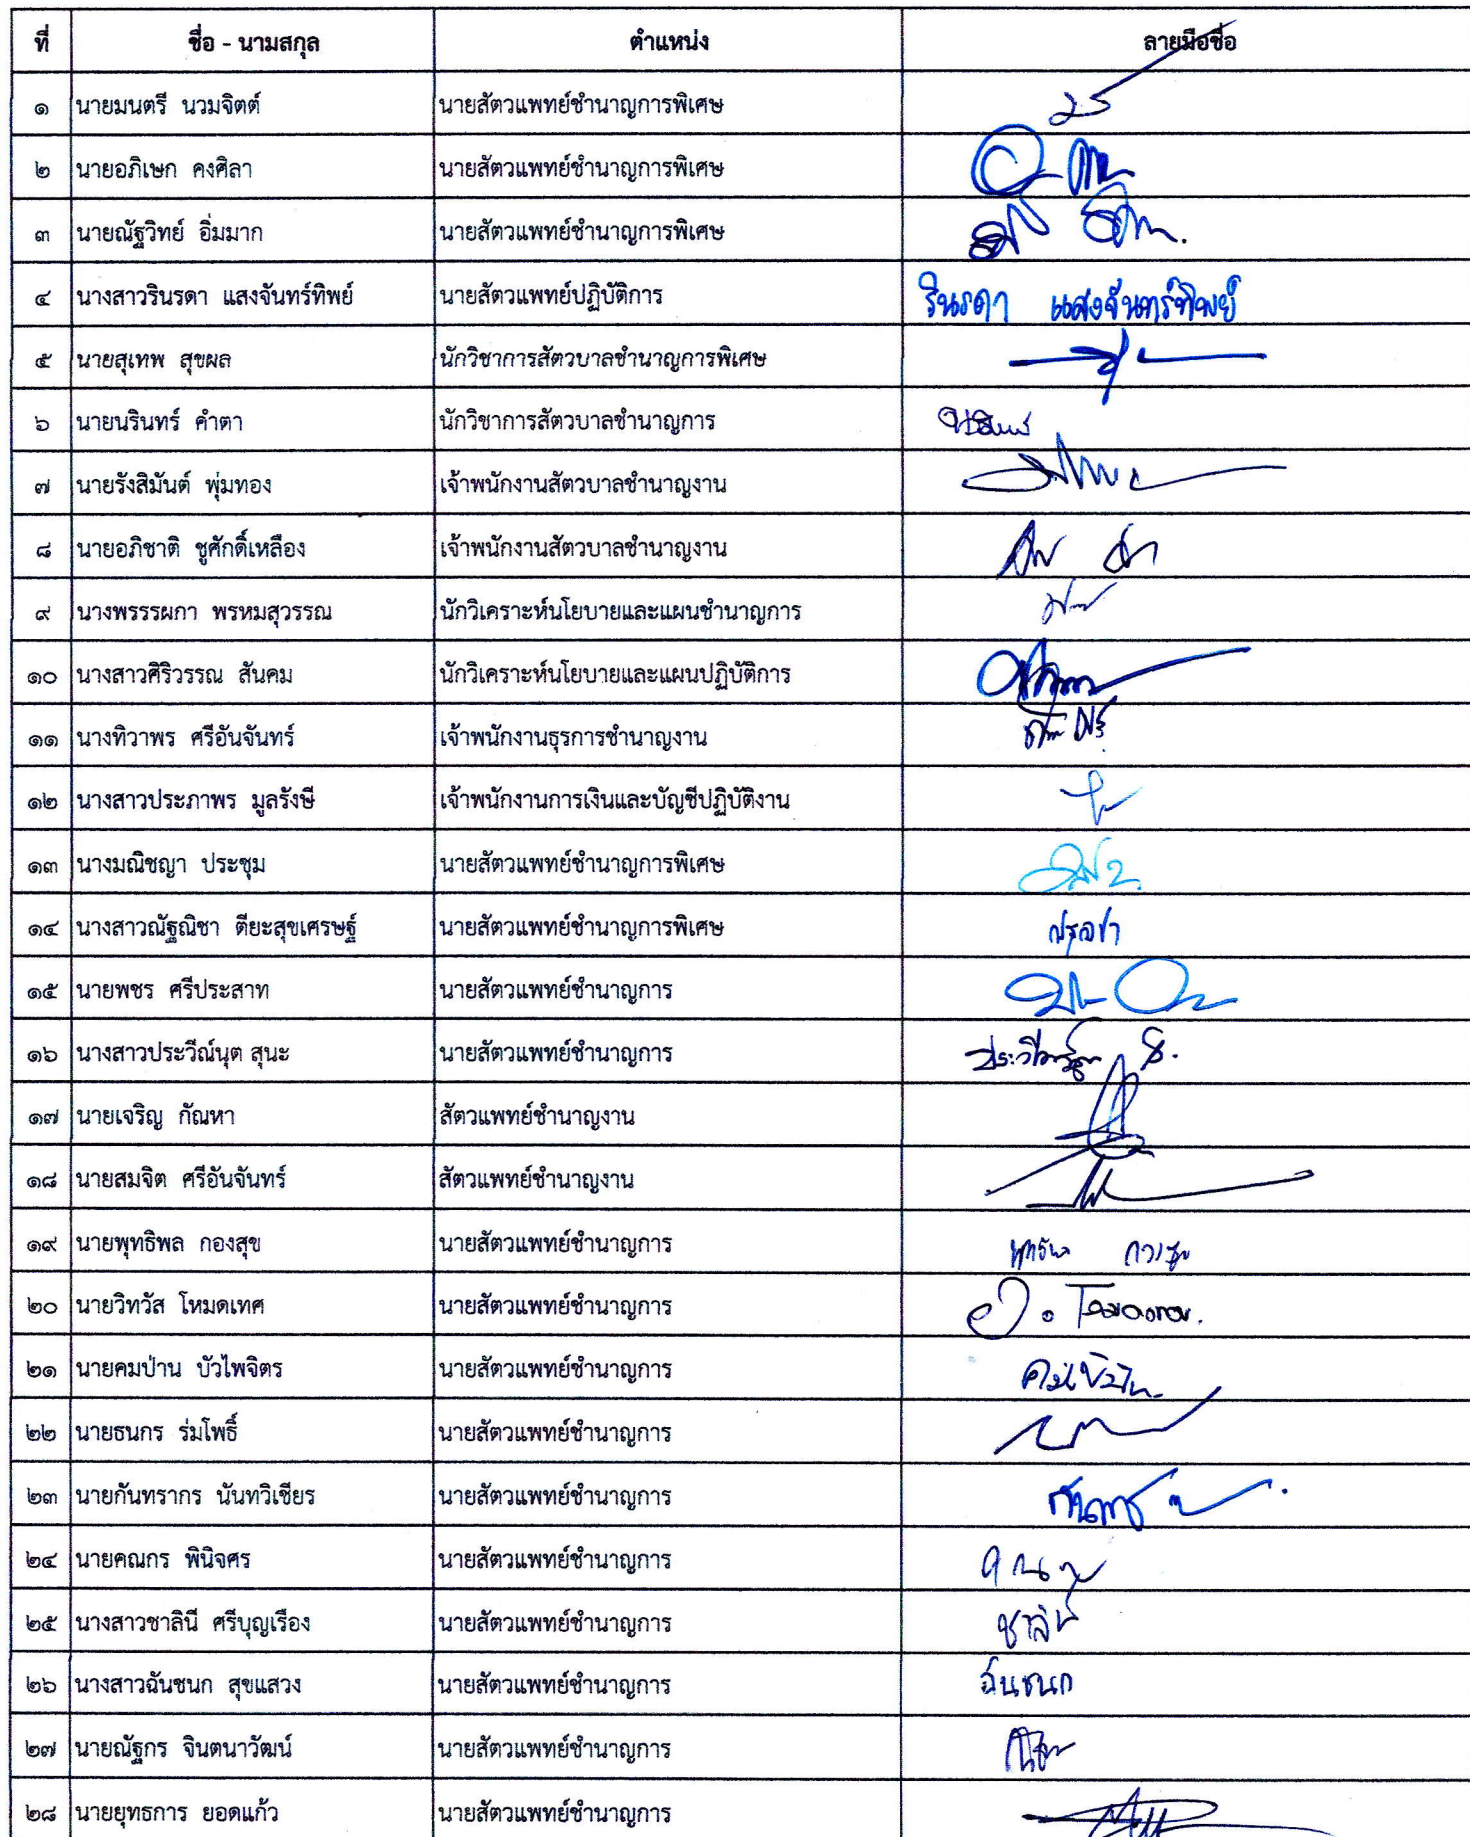 ที่ ชื่อ - นามสกุล ตำแหน่ง ลายมือชื่อ
๑ นายมนตรี นวมจิตต์ นายสัตวแพทย์ชำนาญการพิเศษ
๒ นายอภิเษก คงศิลา นายสัตวแพทย์ชำนาญการพิเศษ
๓ นายณัฐวิทย์ อิ่มมาก นายสัตวแพทย์ชำนาญการพิเศษ
๔ นางสาวรินรดา แสงจันทร์ทิพย์ นายสัตวแพทย์ปฏิบัติการ รินรดา แสงจันทร์ทิพย์
๕ นายสุเทพ สุขผล นักวิชาการสัตวบาลชำนาญการพิเศษ
๖ นายนรินทร์ คำตา นักวิชาการสัตวบาลชำนาญการ
๗ นายรังสิมันต์ พุ่มทอง เจ้าพนักงานสัตวบาลชำนาญงาน
๘ นายอภิชาติ ชูศักดิ์เหลือง เจ้าพนักงานสัตวบาลชำนาญงาน
๙ นางพรรรผกา พรหมสุวรรณ นักวิเคราะห์นโยบายและแผนชำนาญการ
๑๐ นางสาวศิริวรรณ สันคม นักวิเคราะห์นโยบายและแผนปฏิบัติการ
๑๑ นางทิวาพร ศรีอันจันทร์ เจ้าพนักงานธุรการชำนาญงาน
๑๒ นางสาวประภาพร มูลรังษี เจ้าพนักงานการเงินและบัญชีปฏิบัติงาน
๑๓ นางมณิชญา ประชุม นายสัตวแพทย์ชำนาญการพิเศษ
๑๔ นางสาวณัฐณิชา ตียะสุขเศรษฐ์ นายสัตวแพทย์ชำนาญการพิเศษ
๑๕ นายพชร ศรีประสาท นายสัตวแพทย์ชำนาญการ
๑๖ นางสาวประวีณ์นุต สุนะ นายสัตวแพทย์ชำนาญการ
๑๗ นายเจริญ กัณหา สัตวแพทย์ชำนาญงาน
๑๘ นายสมจิต ศรีอันจันทร์ สัตวแพทย์ชำนาญงาน
๑๙ นายพุทธิพล กองสุข นายสัตวแพทย์ชำนาญการ
๒๐ นายวิทวัส โหมดเทศ นายสัตวแพทย์ชำนาญการ
๒๑ นายคมป่าน บัวไพจิตร นายสัตวแพทย์ชำนาญการ
๒๒ นายธนกร ร่มโพธิ์ นายสัตวแพทย์ชำนาญการ
๒๓ นายกันทรากร นันทวิเชียร นายสัตวแพทย์ชำนาญการ
๒๔ นายคณกร พินิจศร นายสัตวแพทย์ชำนาญการ
๒๕ นางสาวชาลินี ศรีบุญเรือง นายสัตวแพทย์ชำนาญการ ชาลินี
๒๖ นางสาวฉันชนก สุขแสวง นายสัตวแพทย์ชำนาญการ ฉันชนก
๒๗ นายณัฐกร จินตนาวัฒน์ นายสัตวแพทย์ชำนาญการ
๒๘ นายยุทธการ ยอดแก้ว นายสัตวแพทย์ชำนาญการ